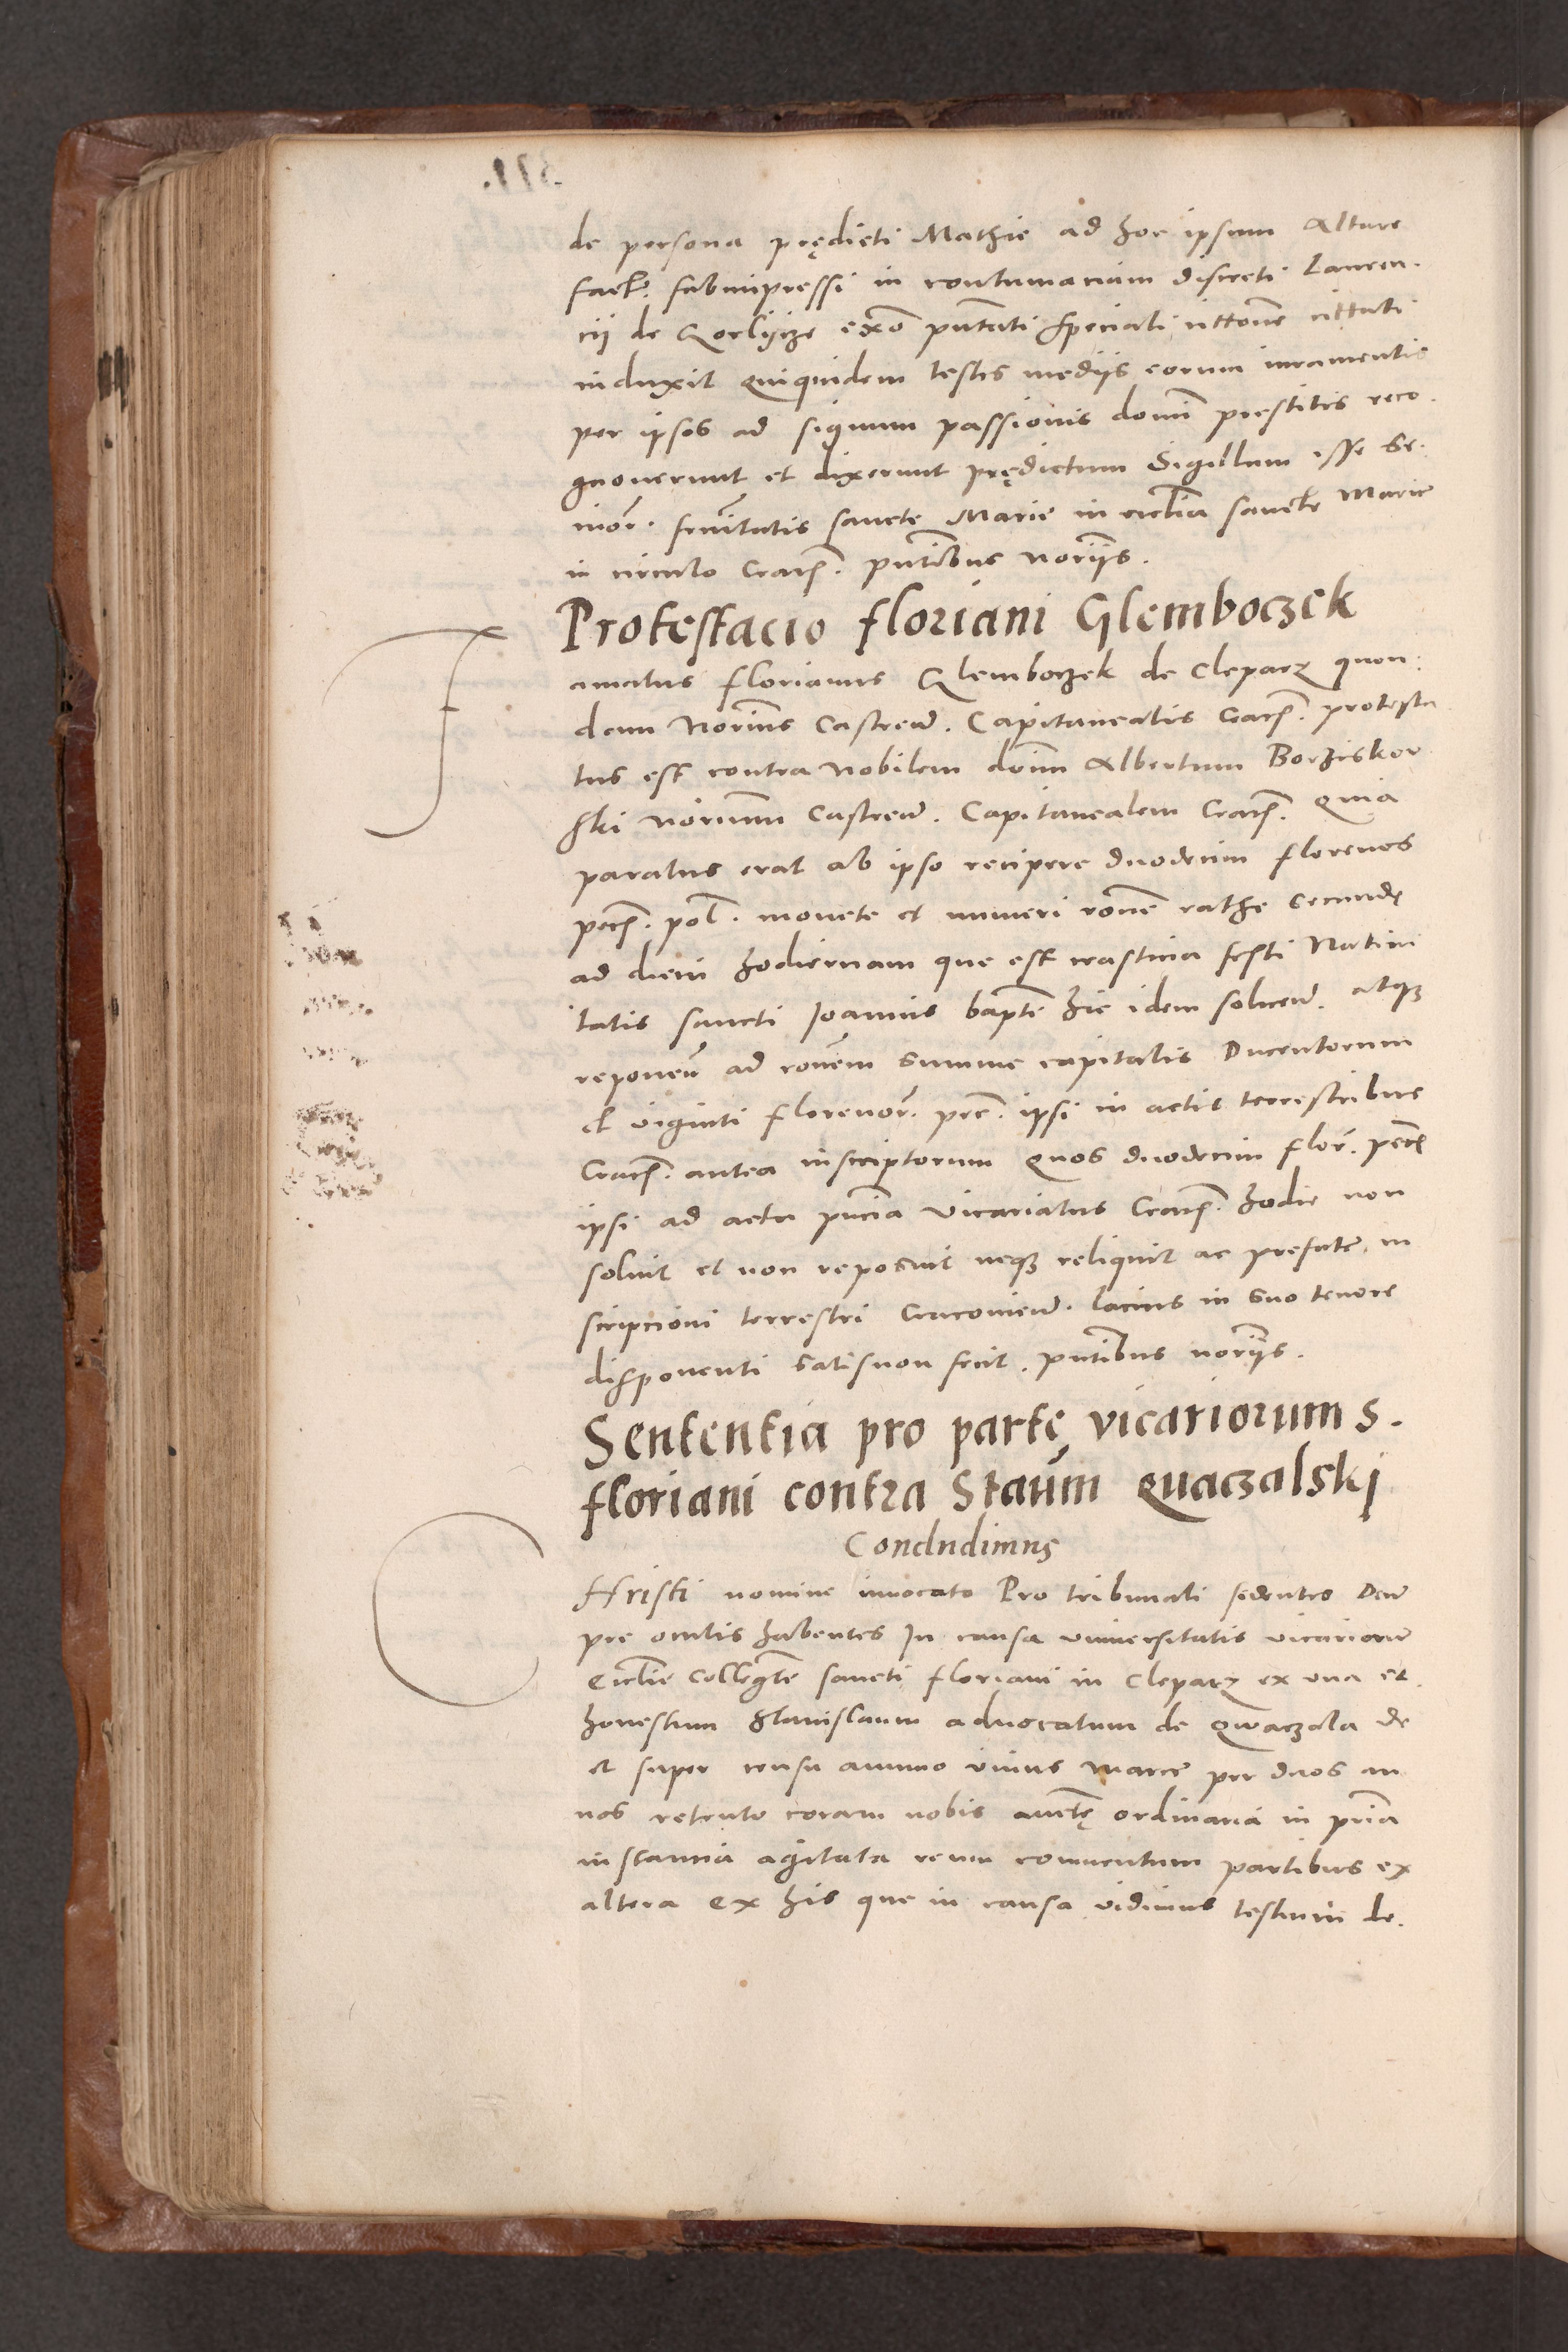 de persona prędicti Mathie ad hoc ipsum Altare
fact. subimpressi in contumaciam discreti Lauren.
cij de Gorlijcze exõ pntati speciali cittone cittati
induxit Quiquidem testes medijs eorum iuramentis
per ipsos ad signum passionis domi prestitis reco.
gnoverunt et dixerunt prędictum Sigillum esse Se.
nior. frnitatis sancte Marie in ecclia sancte Marie
in circulo Crac. pntibus norijs.
Protestacio floriani Glemboczek
F
amatus florianus Glemboczek de Cleparz quon:
dam Norius Castren. Capitanealis Crac. protesta
tus est contra Nobilem dom Albertum Borziskow
ski norium Castren. Capitanealem Crac. Quia
paratus erat ab ipso recipere duodecim florenos
pec. pol. monete et numeri rone rathe Secundę
ad diem hodiernam que est crastina festi Nativi
tatis sancti Joannis bapte hic idem solven. atque
reponen ad ronem Summe capitalis Ducentorum
et viginti florenor. pec. ipsi in actis terrestribus
Crac. antea inscriptorum Quos duodecim flor. pec
ipsi ad acta pncia Vicariatus Crac. hodie non
solvit et non reposuit neque reliquit ac prefate in
scripcioni terrestri Cracovien. lacius in suo tenore
disponenti satisnon fecit. pntibus norijs.
Sententia pro parte vicariorum S.
floriani contra Staum Quaczalskj
Concludimus
C
Hristi nomine invocato Pro tribunali sedentes Deum
pre oculis habentes In causa universitatis vicariorum
Ecclie Collegte sancti floriani in Cleparz ex una et
honestum Stanislaum advocatum de Qwaczala de
et super censu annuo unius marce per duos an
nos retento coram nobis auctę ordinaria in prima
instancia agitata reum conventum partibus ex
altera Ex his que in causa vidimus testium de.